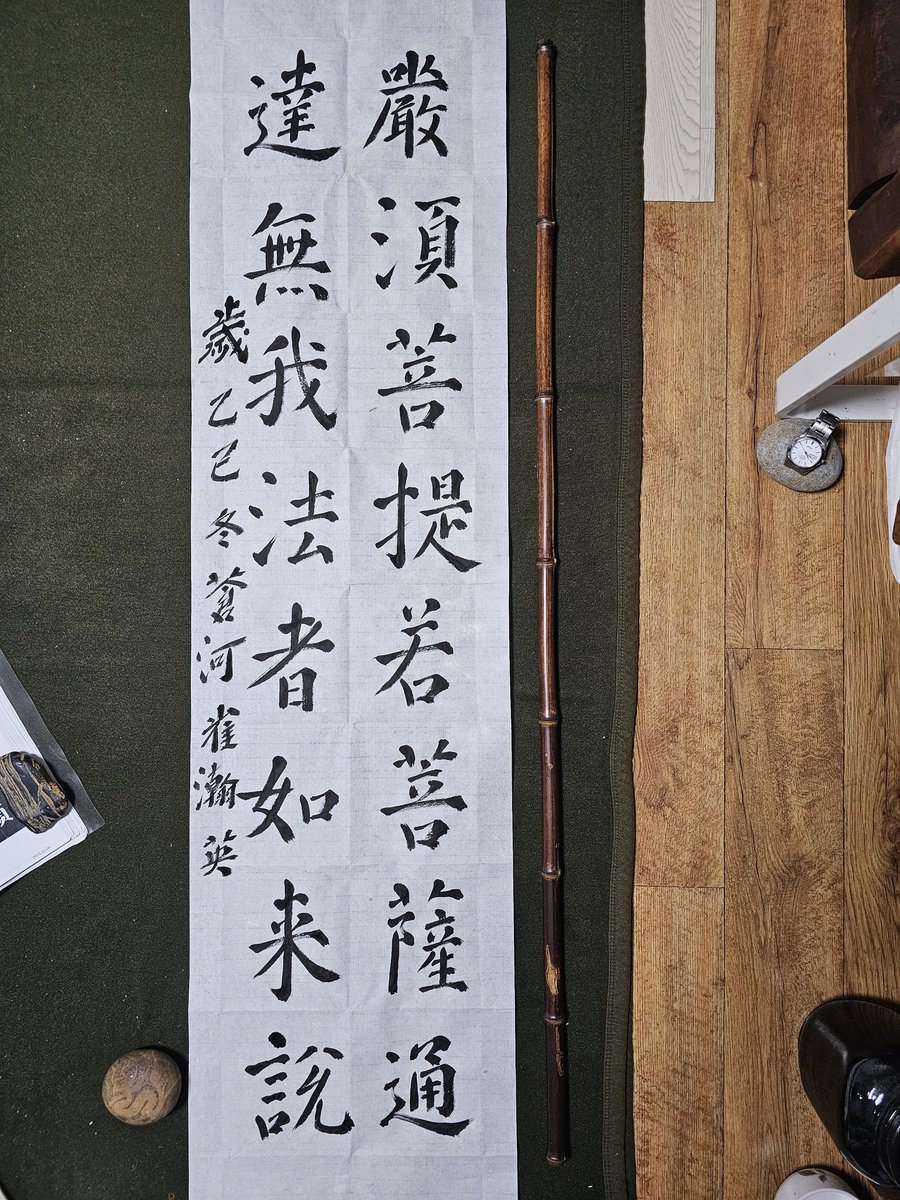 嚴須菩提若菩薩通
達無我法者如来說
歲乙巳冬蒼河崔瀚英